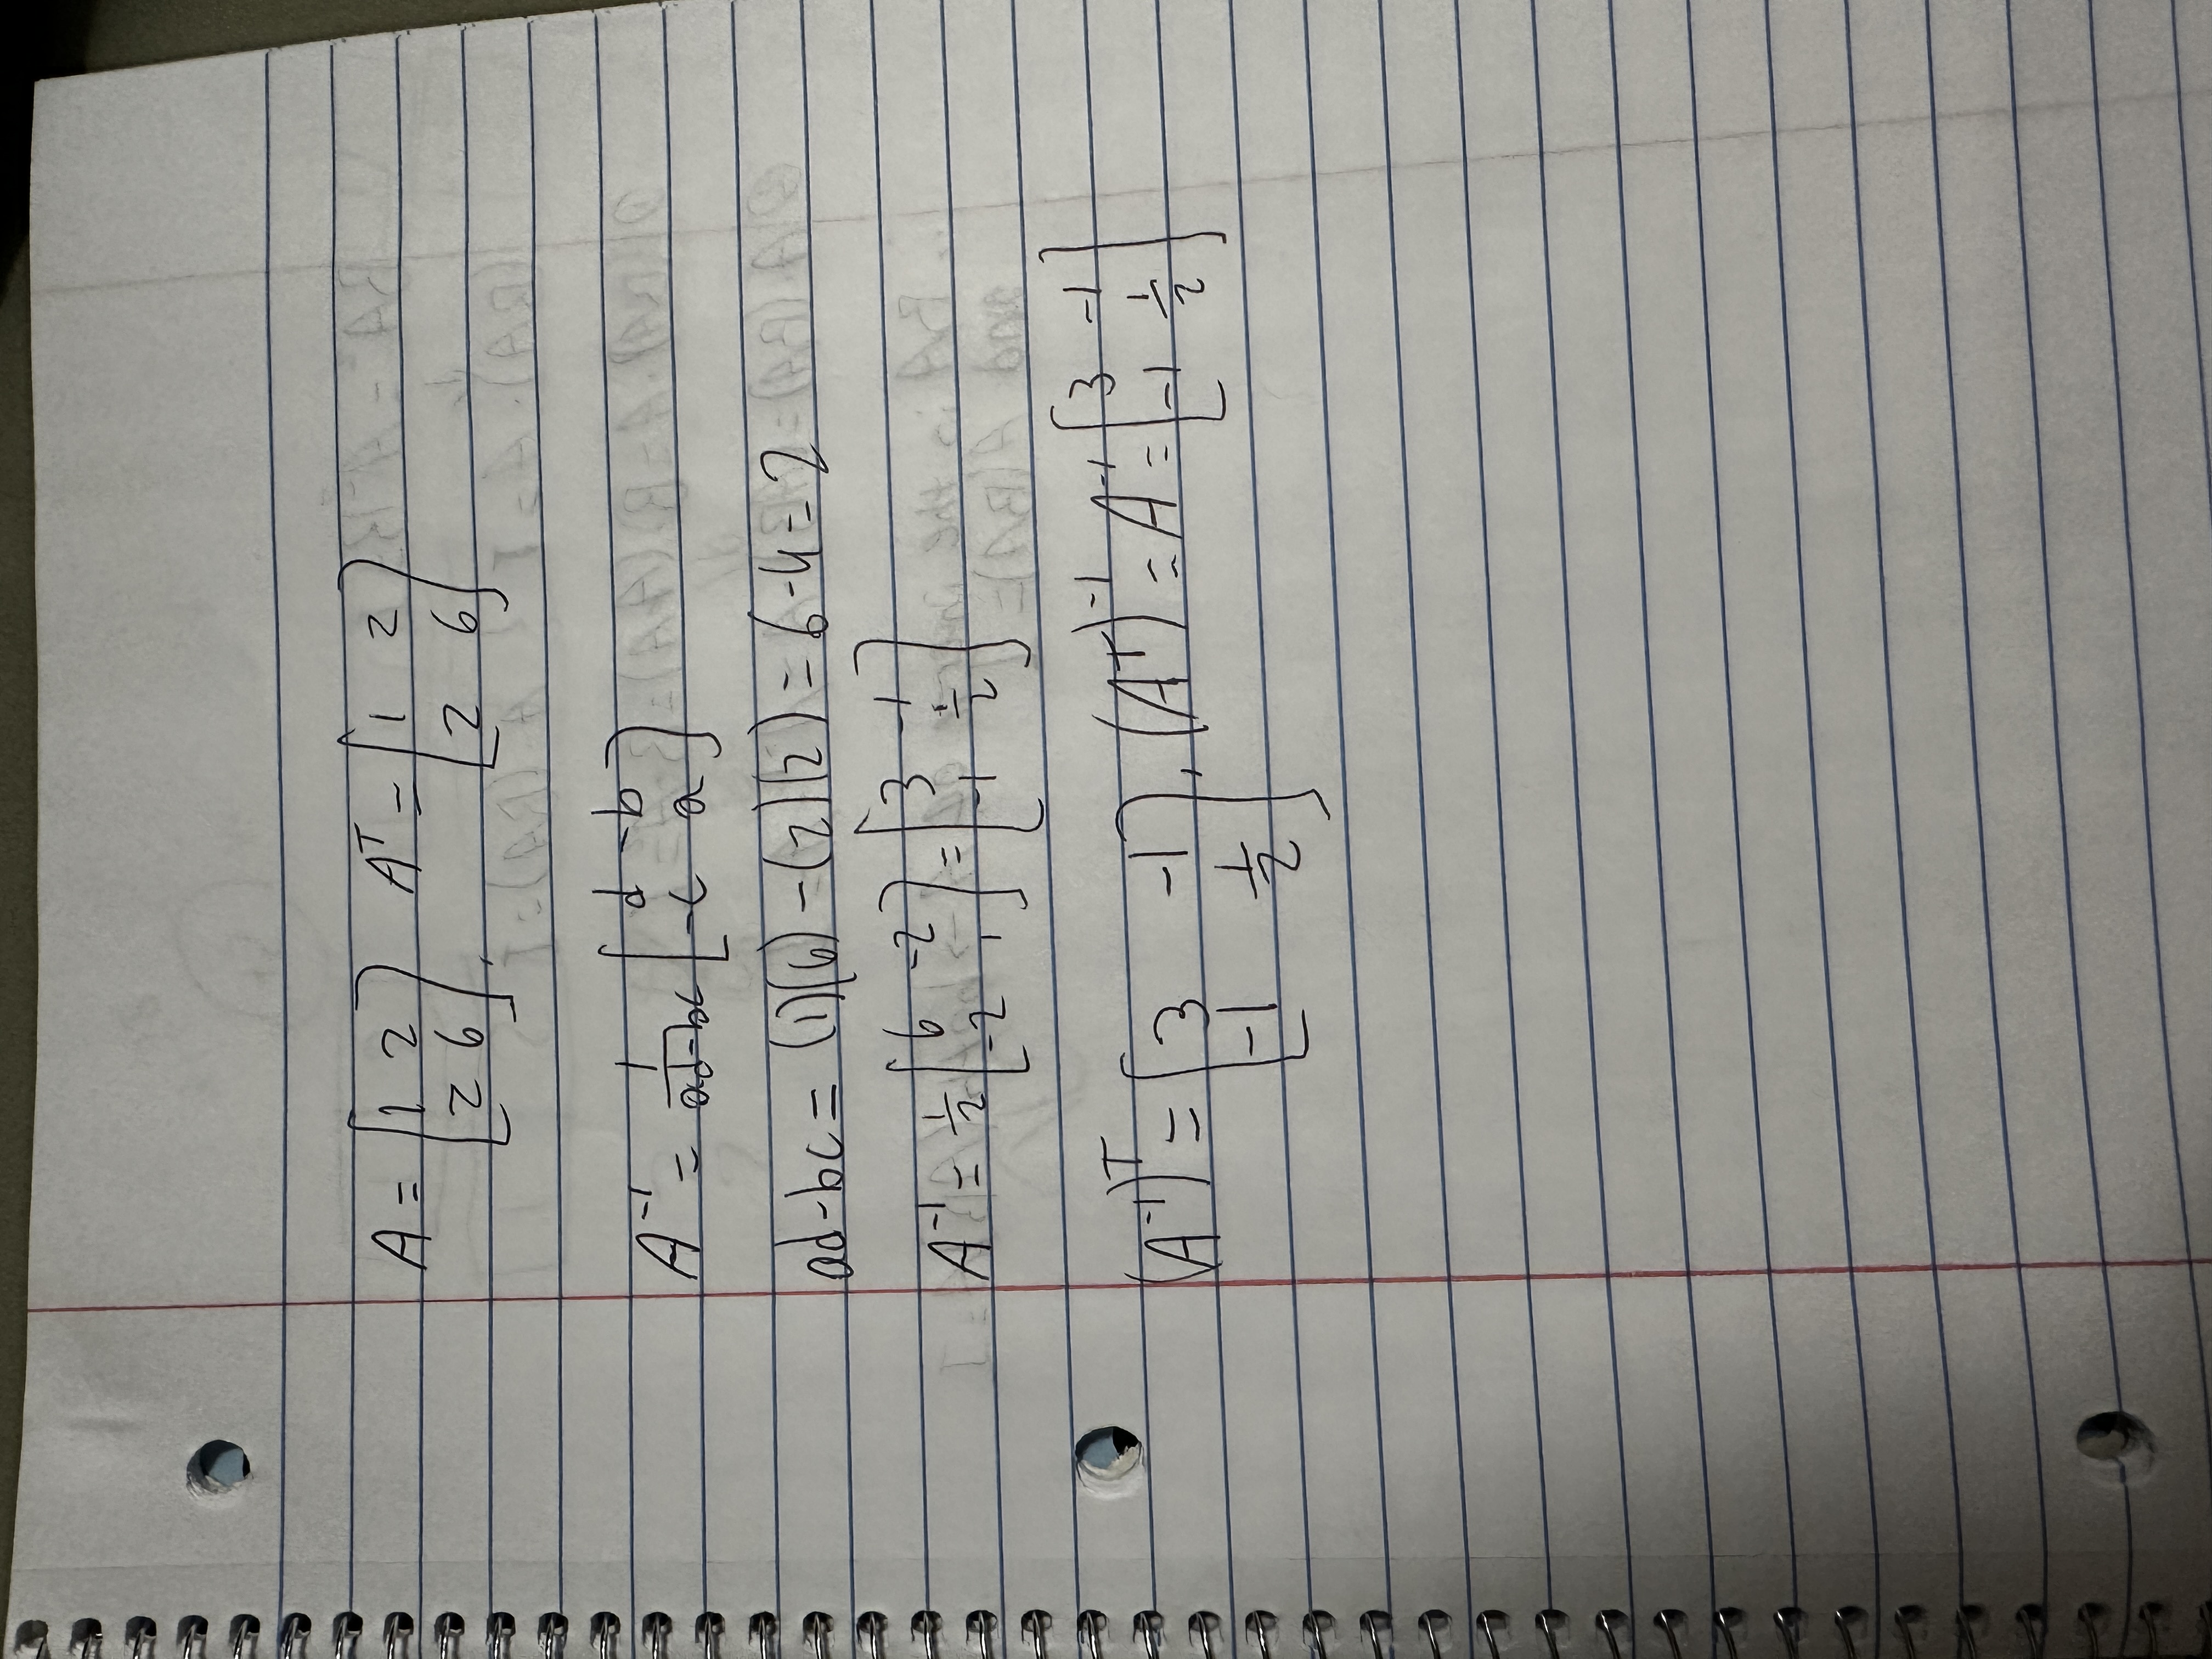 A = [1 2
2 6], A^T = [1 2
2 6]
A^-1 = 1/(ad-bc) [d -b
-c a]
ad-bc = (1)(6) - (2)(2) = 6-4 = 2
A^-1 = 1/2 [6 -2
-2 1] = [3 -1
-1 1/2]
(A^-1)^T = [3 -1
-1 1/2], (A^T)^-1 = A^-1 = [3 -1
-1 1/2]